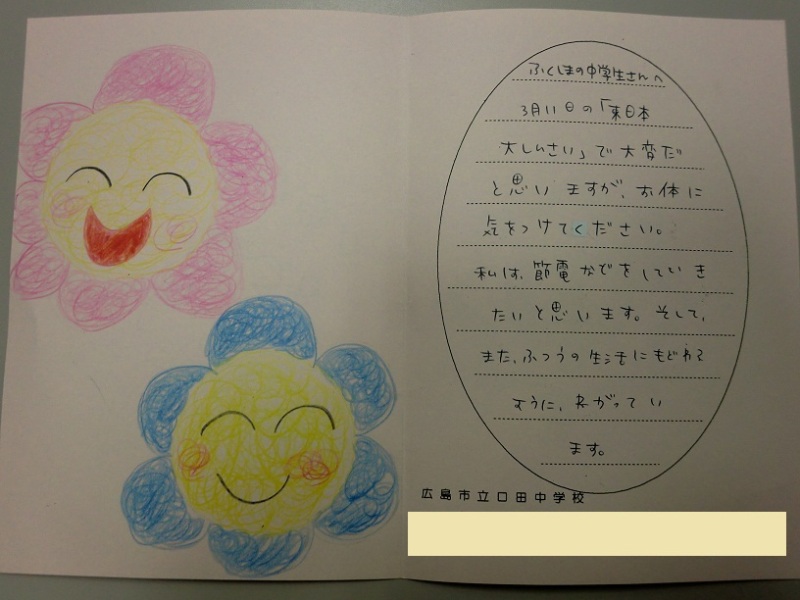 ふくしまの中学生さんへ
3月11日の「東日本
大しんさい」で大変だ
と思いますが、お体に
気をつけてください。
私は、節電などをしていき
たいと思います。そして、
また、ふつうの生活にもどれる
ように、ねがってい
ます。
広島市立口田中学校